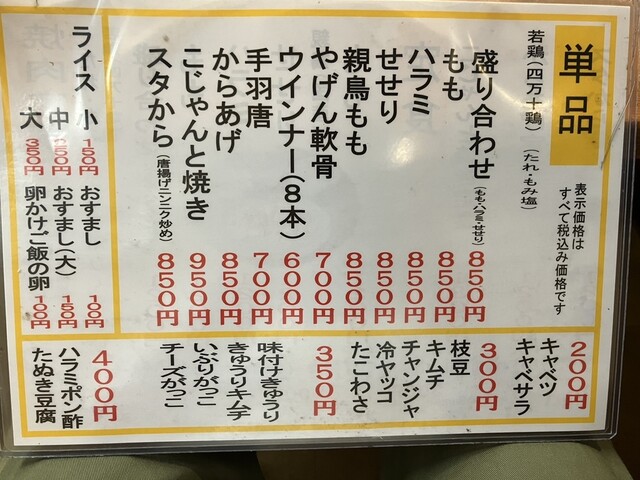 単品
表示価格は
すべて税込み価格です
若鶏(四万十鶏)
(たれ・もみ塩)
盛り合わせ(もも・ハラミ・せせり) 850円
もも 850円
ハラミ 850円
せせり 850円
親鳥もも 850円
やげん軟骨 700円
ウインナー(8本) 600円
手羽唐 700円
からあげ 850円
こじゃんと焼き 950円
スタから(唐揚げニンニク炒め) 850円
ライス 小 150円
中 250円
大 350円
おすまし 100円
おすまし(大) 150円
卵かけご飯の卵 100円
200円
キャベツ
キャベサラ
300円
枝豆
キムチ
チャンジャ
冷ヤッコ
たこわさ
350円
味付けきゅうり
きゅうりキムチ
いぶりがっこ
チーズがっこ
400円
ハラミポン酢
たぬき豆腐